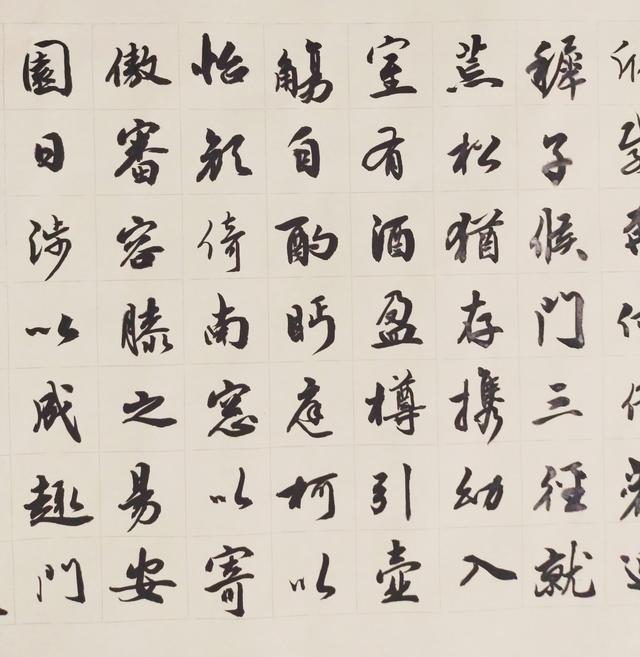 穉子候門三徑就
荒松猶存携幼入
室有酒盈樽引壺
觴自酌眄庭柯以
怡顏倚南窓以寄
傲審容膝之易安
園日涉以成趣門